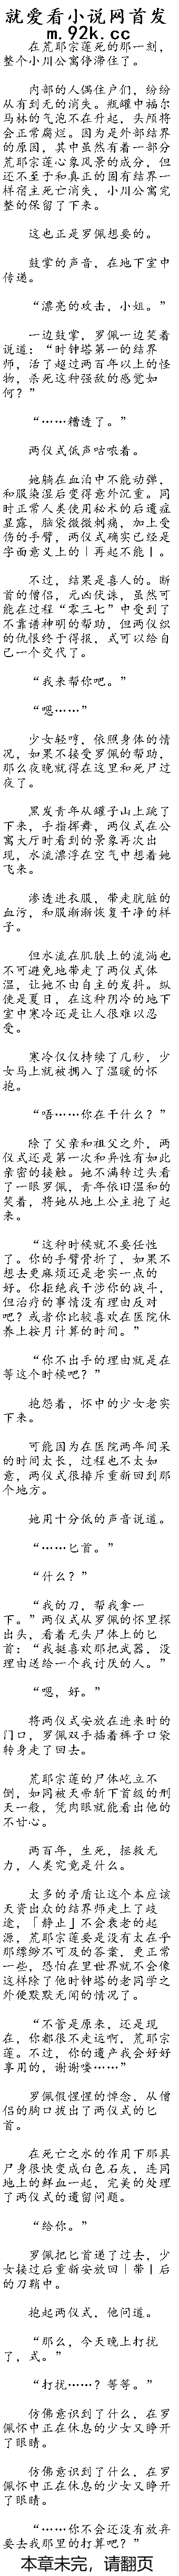 就爱看小说网首发
m.92k.cc
在荒耶宗莲死的那一刻，
整个小川公寓停滞了。
内部的人偶住户们，纷纷
从有到无的消失。瓶罐中福尔
马林的气泡不在升起，头颅将
会正常腐烂。因为是外部结界
的原因，其中虽然有着一部分
荒耶宗莲心象风景的成分，但
还不至于和真正的固有结界一
样宿主死亡消失，小川公寓完
整的保留了下来。
这也正是罗佩想要的。
鼓掌的声音，在地下室中
传递。
“漂亮的攻击，小姐。”
一边鼓掌，罗佩一边笑着
说道：“时钟塔第一的结界
师，活了超过两百年以上的怪
物，杀死这种强敌的感觉如
何？”
“……糟透了。”
两仪式低声咕哝着。
她躺在血泊中不能动弹，
和服染湿后变得意外沉重。同
时正常人类使用秘术的后遗症
显露，脑袋微微刺痛，加上受
伤的手臂，两仪式确实已经是
字面意义上的｜再起不能｜。
不过，结果是喜人的。断
首的僧侣，元凶伏诛，虽然可
能在过程“零三七”中受到了
不靠谱神明的帮助，但两仪织
的仇恨终于得报，式可以给自
己一个交代了。
“我来帮你吧。”
“嗯……”
少女轻哼，依照身体的情
况，如果不接受罗佩的帮助，
那么夜晚就得在这里和死尸过
夜了。
黑发青年从罐子山上跳了
下来，手指挥舞，两仪式在公
寓大厅时看到的景象再次出
现，水流漂浮在空气中想着她
飞来。
渗透进衣服，带走肮脏的
血污，和服渐渐恢复干净的样
子。
但水流在肌肤上的流淌也
不可避免地带走了两仪式体
温，让她不由自主的发抖。纵
使是夏日，在这种阴冷的地下
室中寒冷还是让人很难以忍
受。
寒冷仅仅持续了几秒，少
女马上就被拥入了温暖的怀
抱。
“唔……你在干什么？”
除了父亲和祖父之外，两
仪式还是第一次和异性有如此
亲密的接触。她不满转过头看
了一眼罗佩，青年依旧温和的
笑着，将她从地上公主抱了起
来。
“这种时候就不要任性
了。你的手臂骨折了，如果不
想去更麻烦还是老实一点的
好。你拒绝我干涉你的战斗，
但治疗的事情没有理由反对
吧？或者你比较喜欢在医院休
养上按月计算的时间。”
“你不出手的理由就是在
等这个时候吧？”
抱怨着，怀中的少女老实
下来。
可能因为在医院两年间呆
的时间太长，过程也不太如
意，两仪式很排斥重新回到那
个地方。
她用十分低的声音说道。
“……匕首。”
“什么？”
“我的刀，帮我拿一
下。”两仪式从罗佩的怀里探
出头，看着无头尸体上的匕
首：“我挺喜欢那把武器，没
理由送给一个我讨厌的人。”
“嗯，好。”
将两仪式安放在进来时的
门口，罗佩双手插着裤子口袋
转身走了回去。
荒耶宗莲的尸体屹立不
倒，如同被天帝斩下首级的刑
天一般，凭肉眼就能看出他的
不甘心。
两百年，生死，拯救无
力，人类究竟是什么。
太多的矛盾让这个本应该
天资出众的结界师走上了歧
途，「静止」不会衰老的起
源，荒耶宗莲要是没有太在乎
那缥缈不可及的答案，更正常
一些，恐怕在里世界就不会像
这样除了他时钟塔的老同学之
外便默默无闻的情况了。
“不管是原来，还是现
在，你都很不走运啊，荒耶宗
莲。不过，你的遗产我会好好
享用的，谢谢喽……”
罗佩假惺惺的悼念，从僧
侣的胸口拔出了两仪式的匕
首。
在死亡之水的作用下那具
尸身很快变成白色石灰，连同
地上的鲜血一起，完美的处理
了两仪式的遗留问题。
“给你。”
罗佩把匕首递了过去，少
女接过后重新安放回｜带｜后
的刀鞘中。
抱起两仪式，他问道。
“那么，今天晚上打扰
了，式。”
“打扰……？等等。”
仿佛意识到了什么，在罗
佩怀中正在休息的少女又睁开
了眼睛。
仿佛意识到了什么，在罗
佩怀中正在休息的少女又睁开
了眼睛。
“……你不会还没有放弃
要去我那里的打算吧？”
本章未完，请翻页